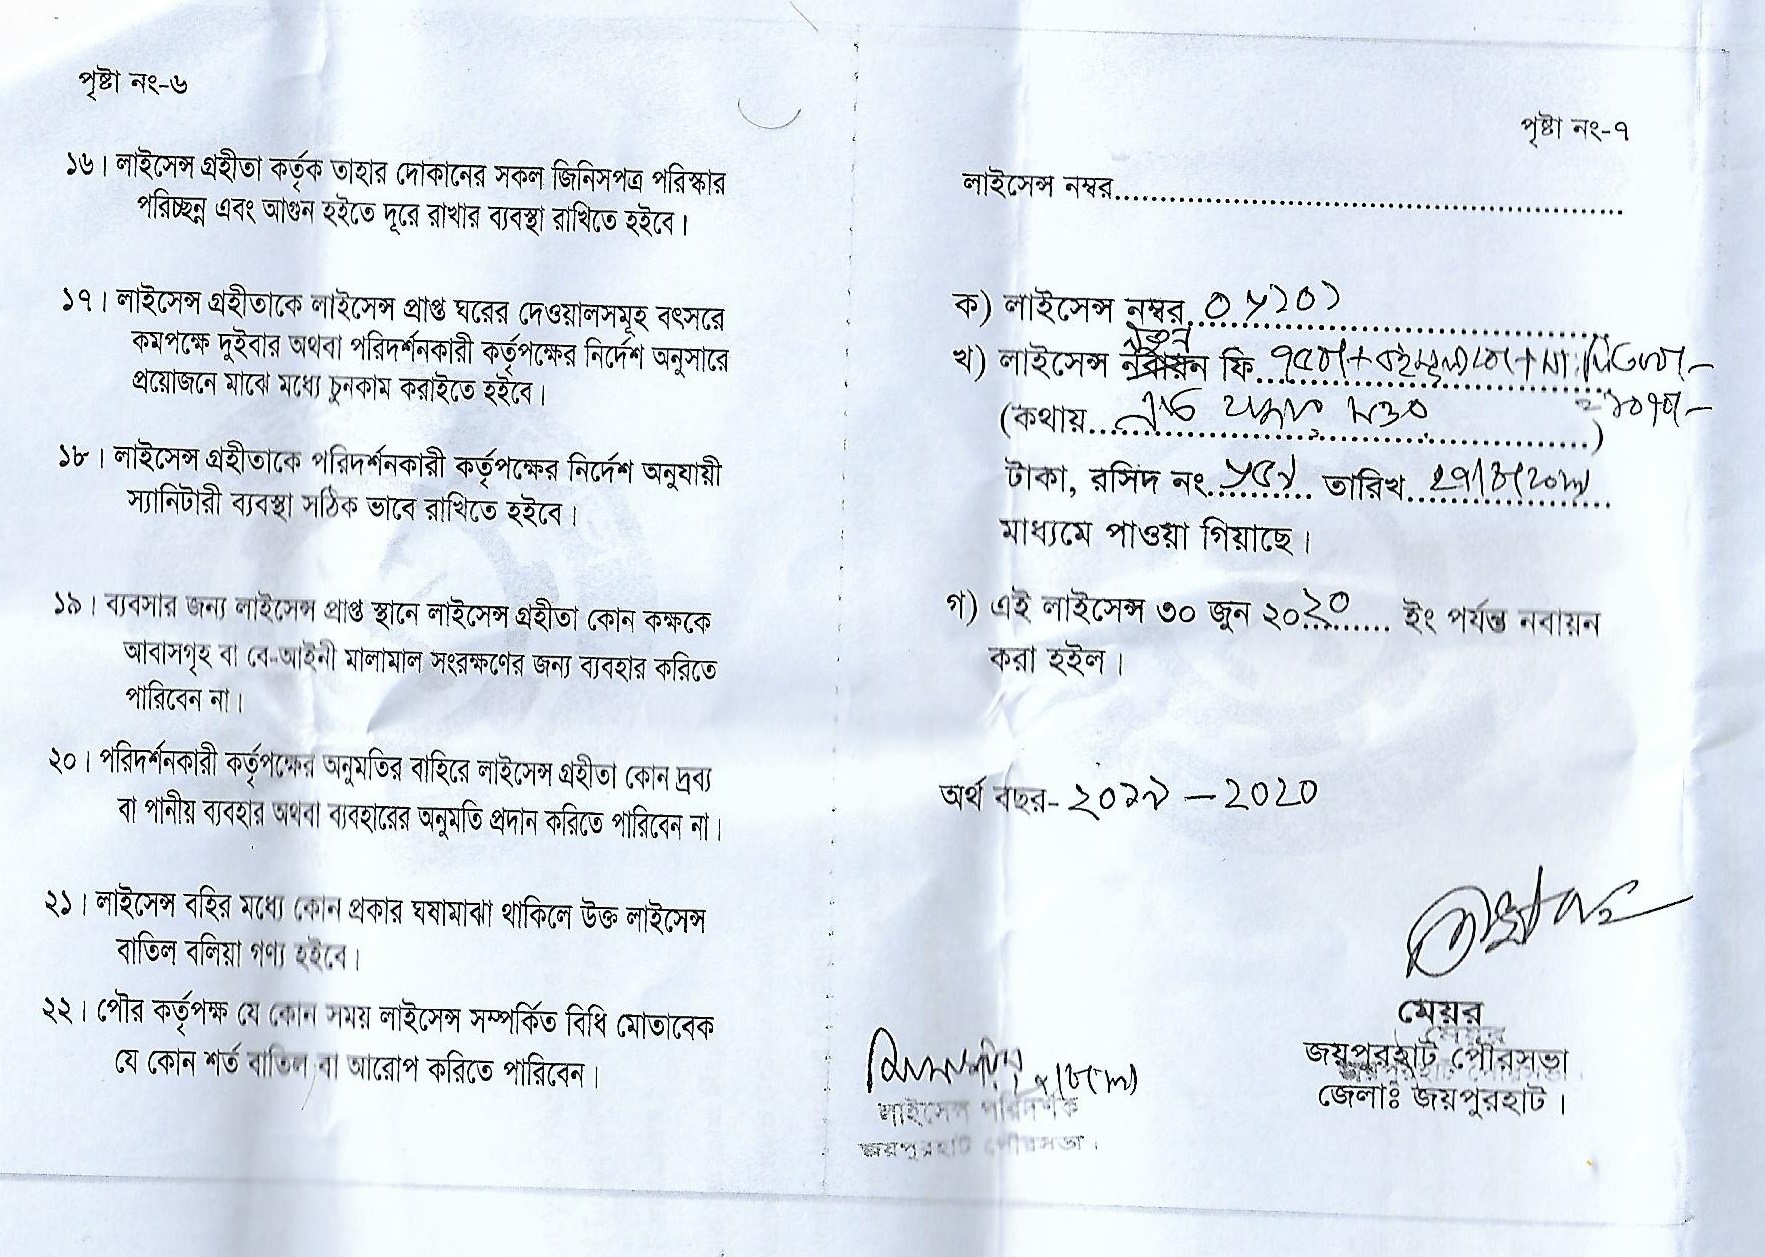 পৃষ্টা নং-৬
১৬। লাইসেন্স গ্রহীতা কর্তৃক তাহার দোকানের সকল জিনিসপত্র পরিস্কার
পরিচ্ছন্ন এবং আগুন হইতে দূরে রাখার ব্যবস্থা রাখিতে হইবে।
১৭। লাইসেন্স গ্রহীতাকে লাইসেন্স প্রাপ্ত ঘরের দেওয়ালসমূহ বৎসরে
কমপক্ষে দুইবার অথবা পরিদর্শনকারী কর্তৃপক্ষের নির্দেশ অনুসারে
প্রয়োজনে মাঝে মধ্যে চুনকাম করাইতে হইবে।
১৮। লাইসেন্স গ্রহীতাকে পরিদর্শনকারী কর্তৃপক্ষের নির্দেশ অনুযায়ী
স্যানিটারী ব্যবস্থা সঠিক ভাবে রাখিতে হইবে।
১৯। ব্যবসার জন্য লাইসেন্স প্রাপ্ত স্থানে লাইসেন্স গ্রহীতা কোন কক্ষকে
আবাসগৃহ বা বে-আইনী মালামাল সংরক্ষণের জন্য ব্যবহার করিতে
পারিবেন না।
২০। পরিদর্শনকারী কর্তৃপক্ষের অনুমতির বাহিরে লাইসেন্স গ্রহীতা কোন দ্রব্য
বা পানীয় ব্যবহার অথবা ব্যবহারের অনুমতি প্রদান করিতে পারিবেন না।
২১। লাইসেন্স বহির মধ্যে কোন প্রকার ঘষামাঝা থাকিলে উক্ত লাইসেন্স
বাতিল বলিয়া গণ্য হইবে।
২২। পৌর কর্তৃপক্ষ যে কোন সময় লাইসেন্স সম্পর্কিত বিধি মোতাবেক
যে কোন শর্ত বাতিল বা আরোপ করিতে পারিবেন।
পৃষ্টা নং-৭
লাইসেন্স নম্বর
ক) লাইসেন্স নম্বর
নতুন
খ) লাইসেন্স নবায়ন ফি
(কথায়
টাকা, রসিদ নং তারিখ
মাধ্যমে পাওয়া গিয়াছে।
গ) এই লাইসেন্স ৩০ জুন ২০২০ ইং পর্যন্ত নবায়ন
করা হইল।
অর্থ বছর- ২০১৯ - ২০২০
মেয়র
জয়পুরহাট পৌরসভা
জেলাঃ জয়পুরহাট।
লাইসেন্স পরিদর্শক
জয়পুরহাট পৌরসভা।